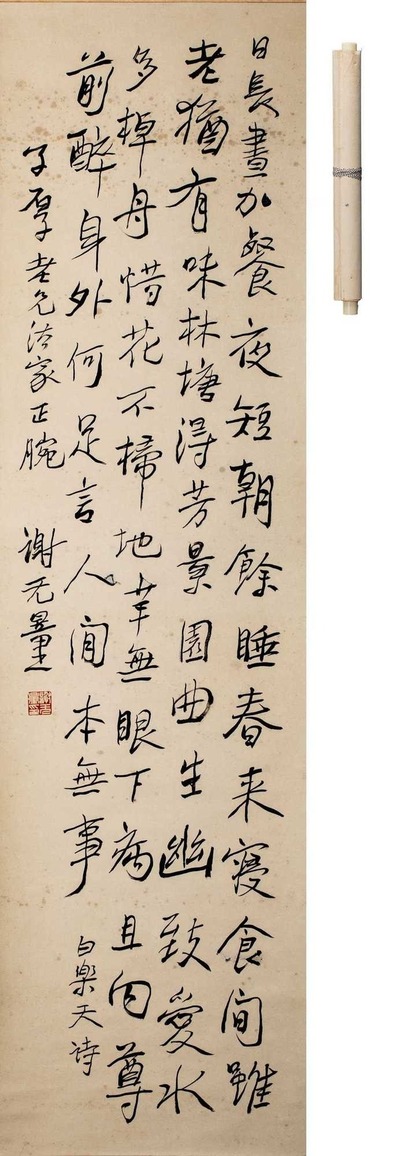 日長晝加餐夜短朝餘睡春来寝食間雖
老猶有味林塘得芳景園曲生幽致愛水
多棹舟惜花不掃地幸無眼下病且向尊
前醉身外何足言人間本無事 白樂天诗
子厚老兄法家正腕 謝无量